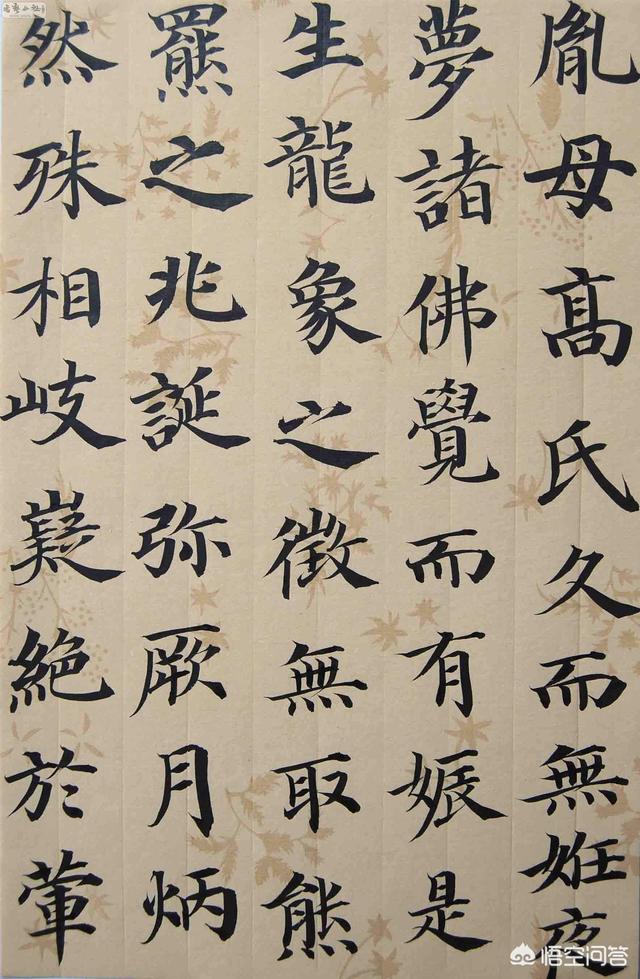 胤母髙氏久而無姙夜
夢諸佛覺而有娠是
生龍象之徵無取熊
羆之兆誕弥厥月炳
然殊相岐嶷絕於葷
悟空问答